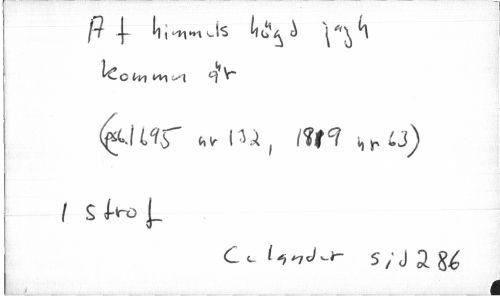 Af himmels högd jagh
kommen är
(psb. 1695 nr 132, 1819 nr 63)
1 strof
Celander sid 286